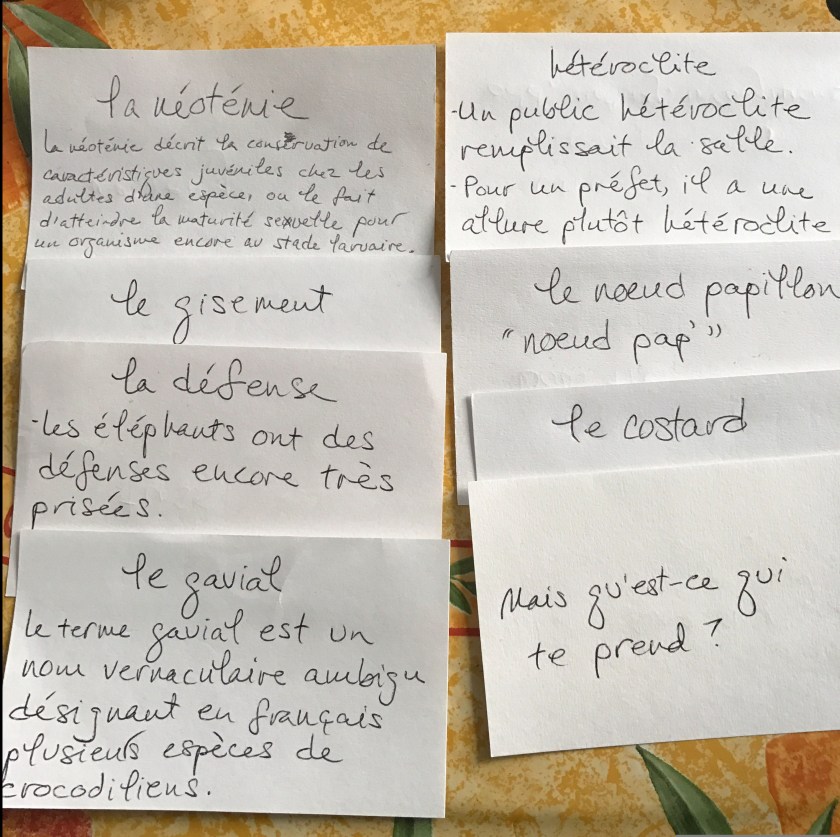 la néoténie
La néoténie décrit la conservation de
caractéristiques juvéniles chez les
adultes d'une espèce, ou le fait
d'atteindre la maturité sexuelle pour
un organisme encore au stade larvaire.
le gisement
la défense
-les éléphants ont des
défenses encore très
prisées.
le gavial
le terme gavial est un
nom vernaculaire ambigu
désignant en français
plusieurs espèces de
crocodiliens.
hétéroclite
-Un public hétéroclite
remplissait la salle.
-Pour un préfet, il a une
allure plutôt hétéroclite
le noeud papillon
"noeud pap'"
le costard
Mais qu'est-ce qui
te prend ?